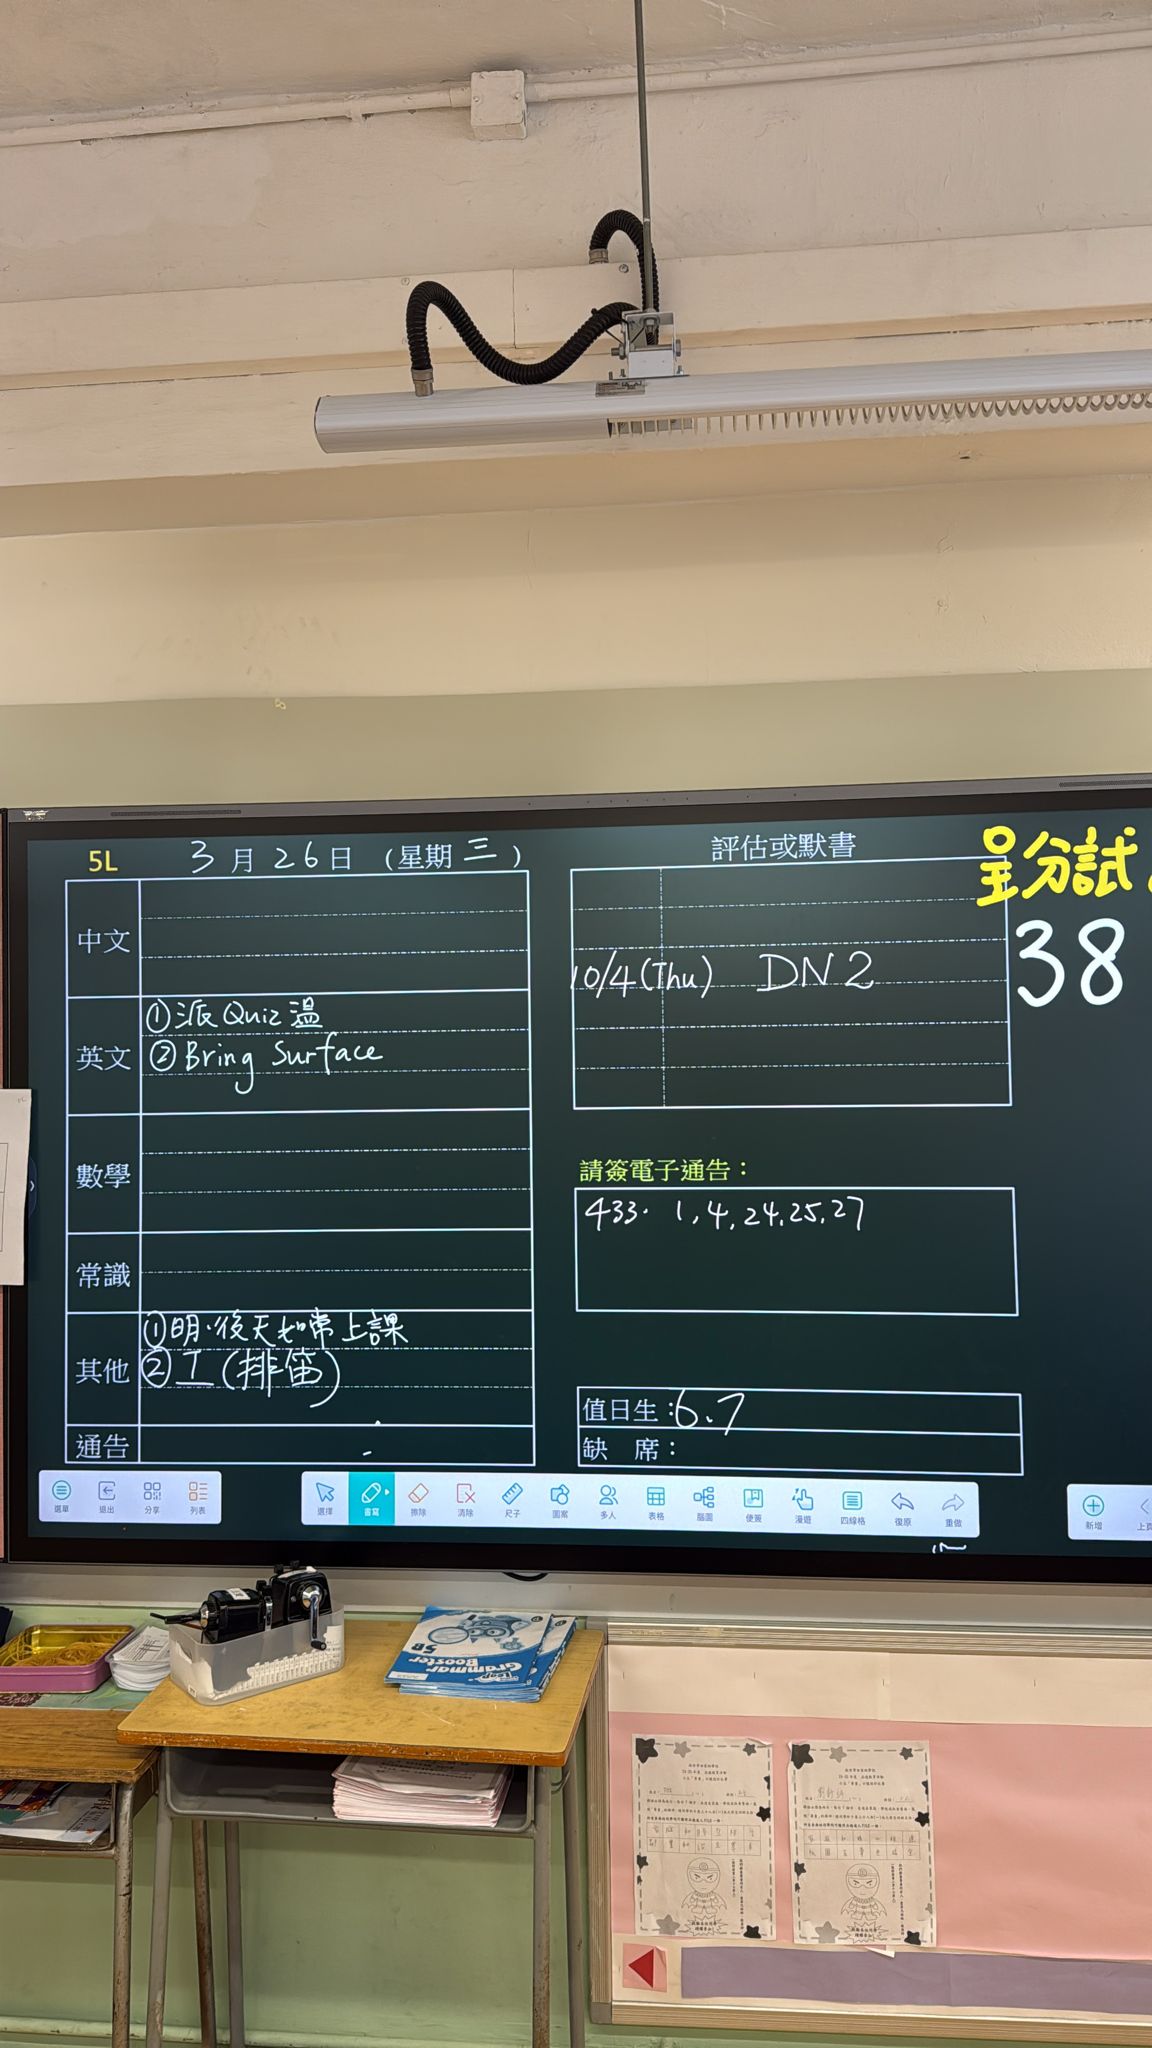 5L 3月26日 (星期三)
中文
英文
①派Quiz溫
②Bring Surface
數學
常識
其他
①明.後天如常上課
②工(排笛)
通告
評估或默書
10/4(Thu) DN2
呈分試
38
請簽電子通告：
433. 1,4,24,25,27
值日生：6.7
缺 席：
選單 退出 分享 列表
選擇 書寫 擦除 清除 尺子 圖案 多人 表格 腦圖 便簽 漫遊 四線格 復原 重做
新增 上頁
5B
Grammar
Booster